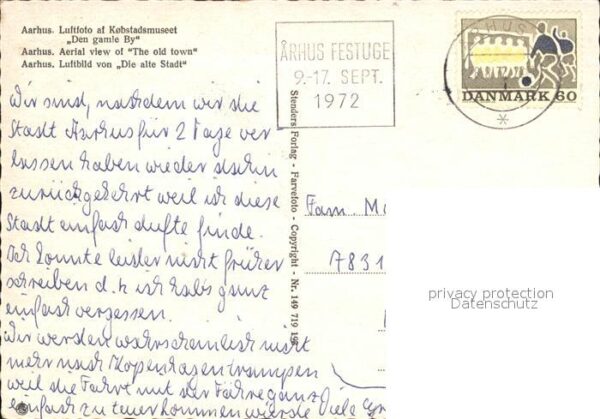 Aarhus. Luftfoto af Købstadsmuseet
„Den gamle By"
Aarhus. Aerial view of "The old town"
Aarhus. Luftbild von „Die alte Stadt"
ÅRHUS FESTUGE
9.-17. SEPT.
1972
ÅRHUS
DANMARK 60
Wir sind, nachdem wir die
Stadt Aarhus für 2 Tage ver
lassen haben wieder dorthin
zurückgekehrt weil ich diese
Stadt einfach dufte finde.
Ich konnte leider nicht früher
schreiben d.h. ich habs ganz
einfach vergessen.
Wir werden wahrscheinlich nicht
mehr nach Kopenhagen trampen
weil die Fahrt mit der Fähre ganz
einfach zu teuer kommen würde Viele Gr
Stenders Forlag - Farvefoto - Copyright - Nr. 149 719
Fam. M
7831
privacy protection
Datenschutz